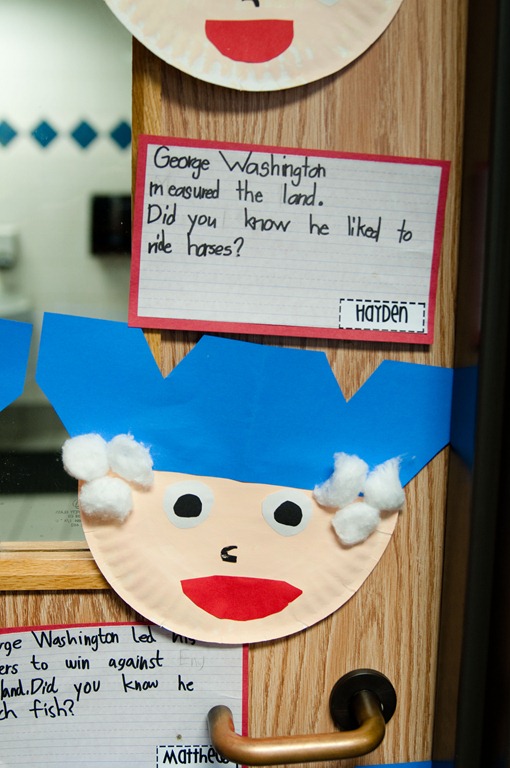 George Washington
measured the land.
Did you know he liked to
ride horses?
HAYDEN
rge Washington led his
ers to win against Eng
land. Did you know he
ch fish?
Matthew